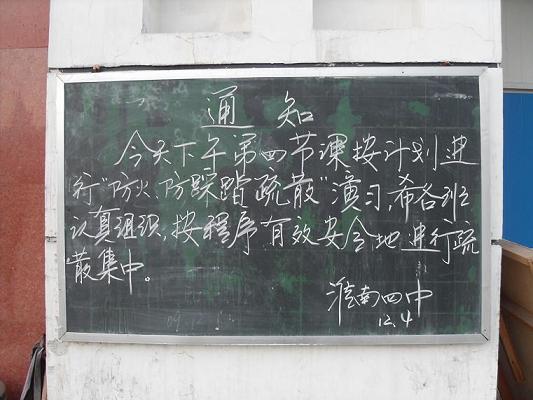 通知
今天下午第四节课按计划进
行“防火、防踩踏疏散”演习,希各班
认真组织,按程序有效安全地进行疏
散集中。
淮南四中
12.4